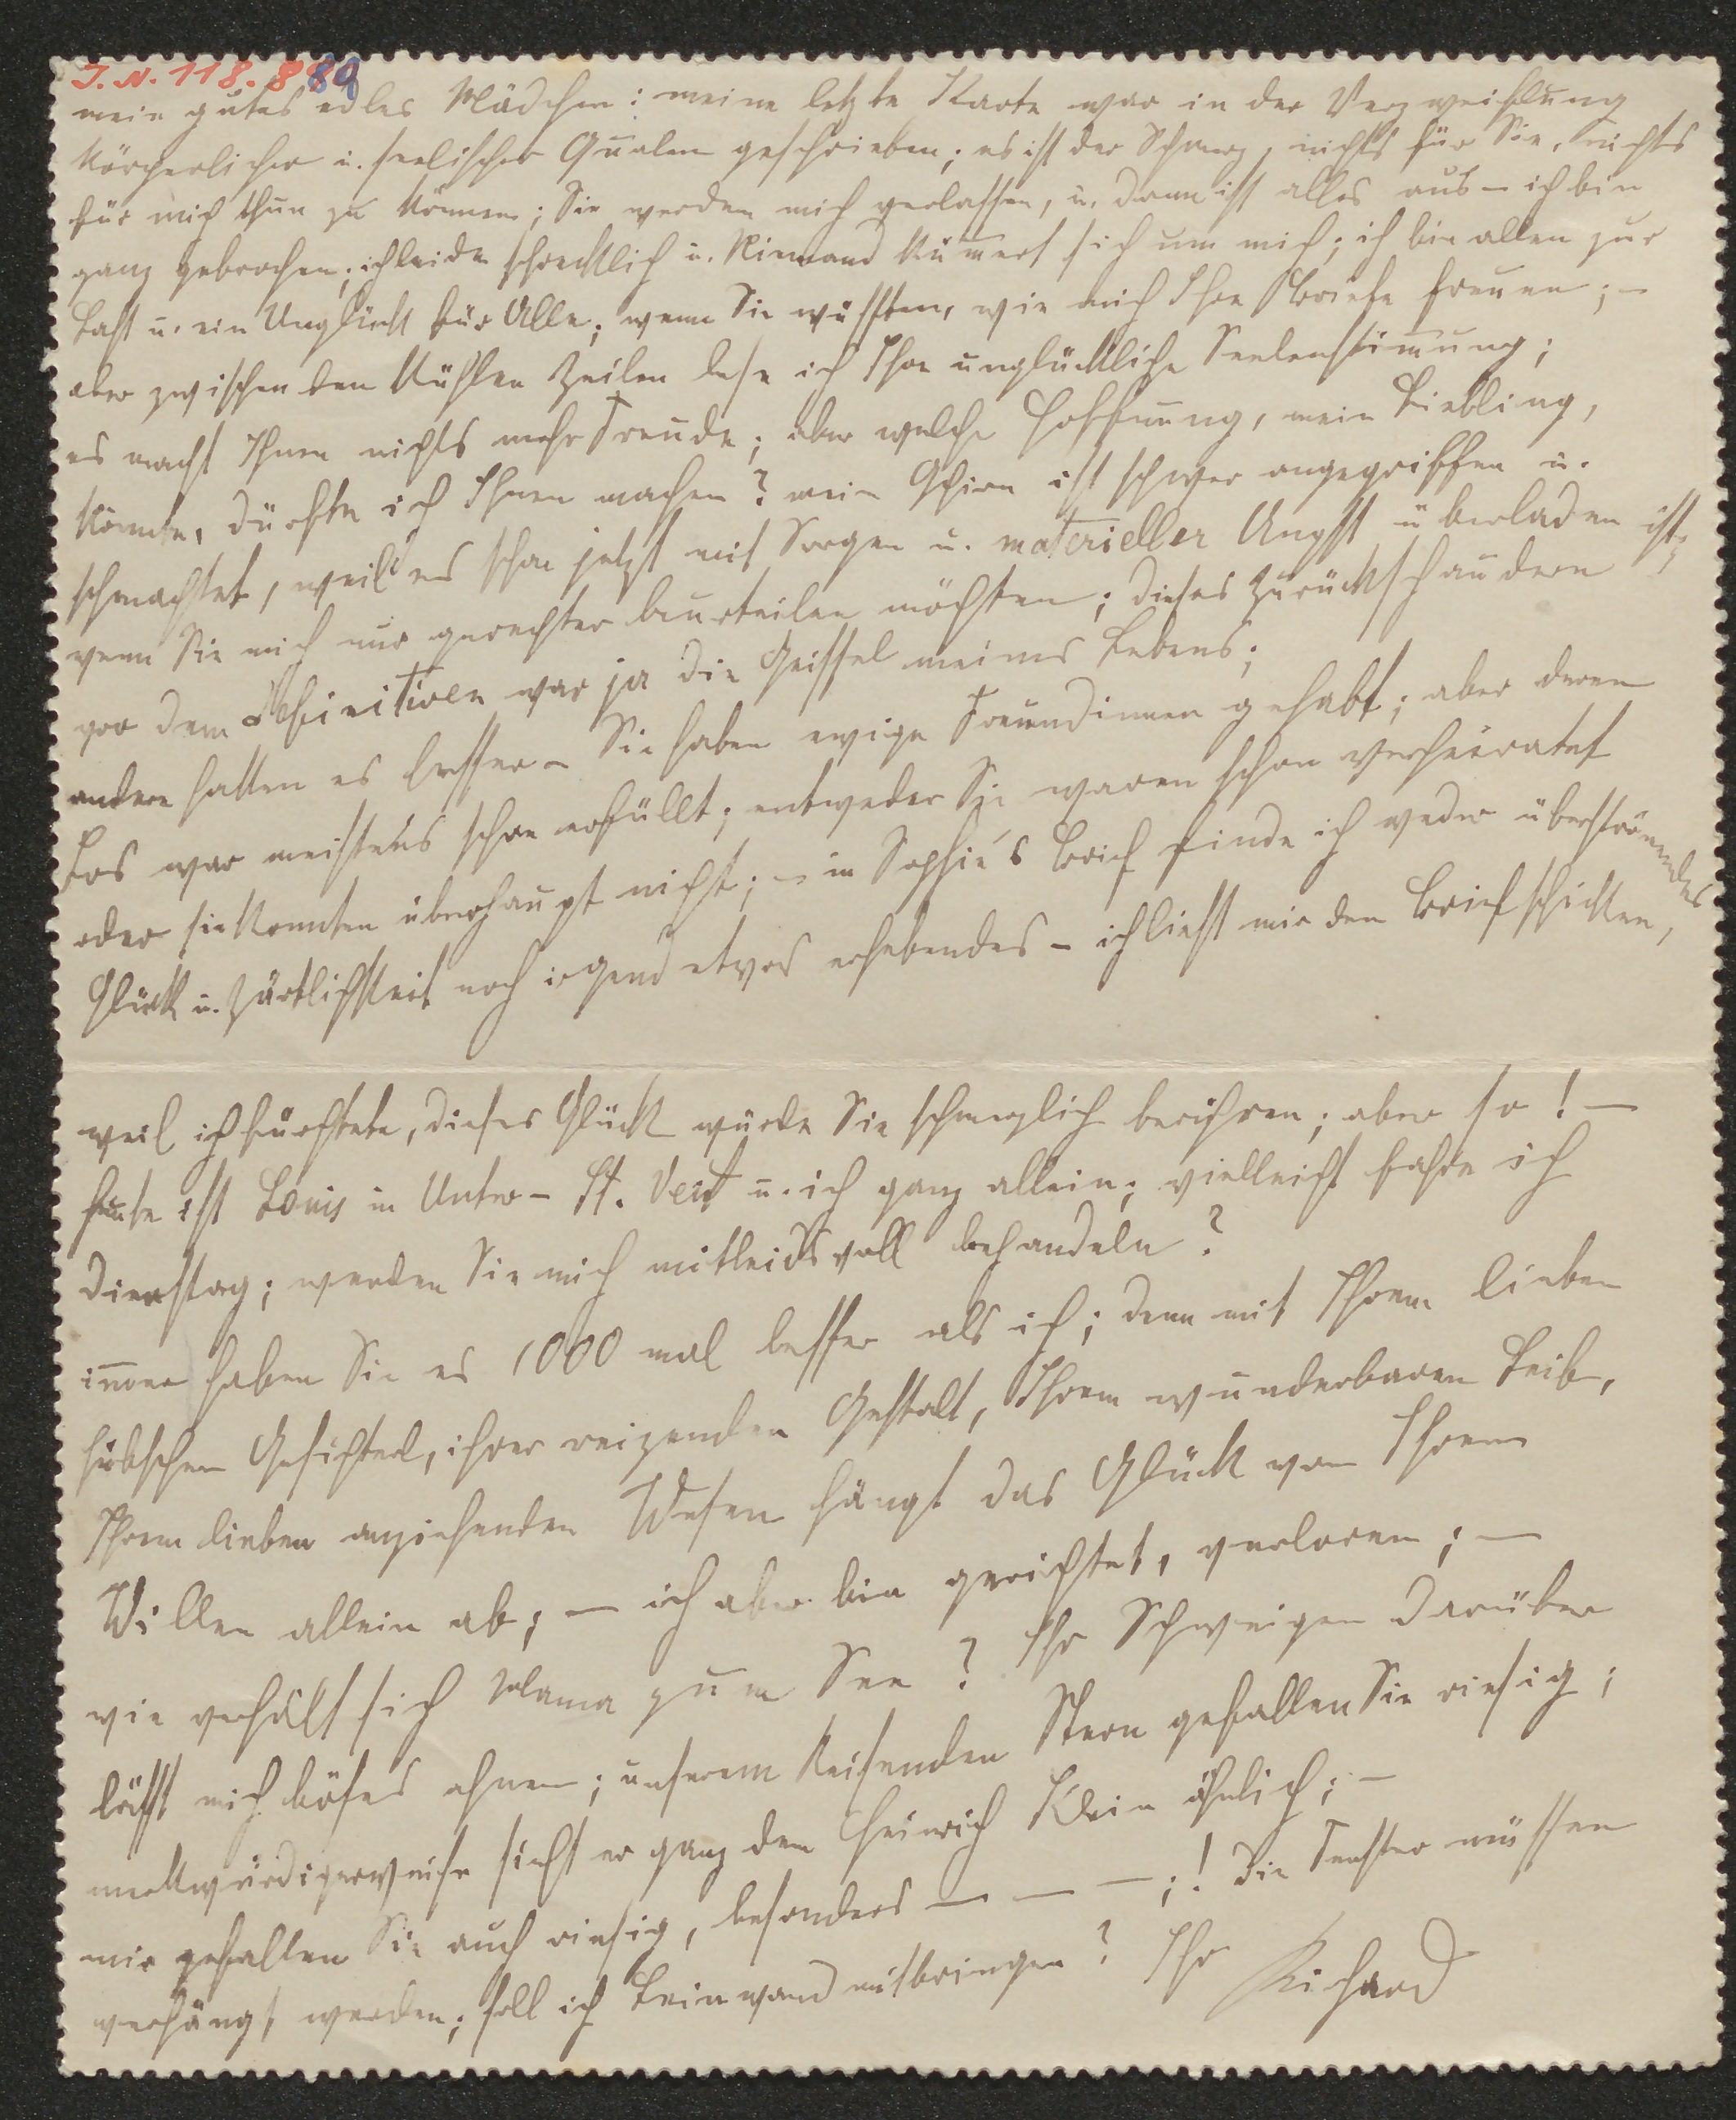 J. N. 118.889
mein gutes edles Mädchen: meine letzte Karte war in der Verzweiflung
körperlicher u. seelischer Qualen geschrieben; es ist der Schmerz, nichts für Sie, nichts
für mich thun zu können; Sie werden mich verlassen, u. dann ist alles aus – ich bin
ganz gebrochen; ich leide schrecklich u. Niemand kümert sich um mich; ich bin allen zur
Last u. ein Unglück für Alle; wenn Sie wüssten, wie mich Ihre Briefe freuen; –
aber zwischen den kühlen Zeilen lese ich Ihre unglückliche Seelenstimung;
es macht Ihnen nichts mehr Freude; aber welche Hoffnung, mein Liebling,
könnte, dürfte ich Ihnen machen? mein Gehirn ist schwer angegriffen u.
schmachtet, weil es schon jetzt mit Sorgen u. materieller Angst überladen ist;
wenn Sie mich nur gerechter beurteilen möchten; dieses Zurückschaudern
vor dem Definitiven war ja die Geissel meines Lebens;
andere hatten es besser – Sie haben ewige Freundinnen gehabt; aber deren
Los war meistens schon erfüllt; entweder Sie waren schon verheiratet
oder sie konnten überhaupt nicht; – in Sophie's Brief finde ich weder überströmendes
Glück u. Zärtlichkeit noch irgend etwas erhebendes – ich liess mir den Brief schicken,
weil ich fürchtete, dieses Glück würde Sie schmerzlich berühren; aber so! –
heute ist Louis in Unter-St. Veit u. ich ganz allein; vielleicht fahre ich
Dienstag; werden Sie mich mitleidsvoll behandeln?
imer haben Sie es 1000 mal besser als ich; denn mit Ihrem lieben
hübschen Gesichterl, ihrer reizenden Gestalt, Ihrem wunderbaren Leib,
Ihrem lieben anziehenden Wesen hängt das Glück von Ihrem
Willen allein ab; – ich aber bin gerichtet, verloren; –
wie verhält sich Mama zum See? Ihr Schweigen darüber
lässt mich böses ahnen; unserem Reisenden Stern gefallen Sie riesig;
merkwürdigerweise sieht er ganz dem Heinrich Klein ähnlich; –
mir gefallen Sie auch riesig, besonders – – – ;! Die Fenster müssen
verhängt werden; soll ich Leinwand mitbringen? Ihr Richard